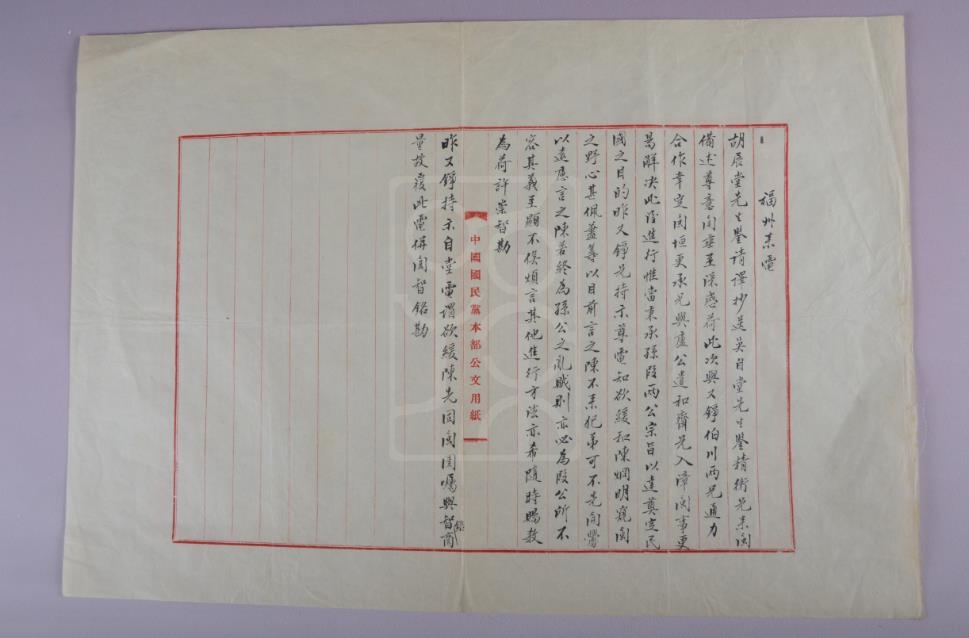 福州來電
胡展堂先生鑒請譯抄送吳自堂先生鑒精衛兄來閩
備述尊意聞垂至深感荷此次與又錚伯川兩兄通力
合作幸定閩垣更承兄與盧公遣和齋兄入漳閩事更
易解決此後進行惟當秉承孫段兩公宗旨以達奠定民
國之目的昨又錚兄持示尊電知欲緩和陳炯明窺閩
之野心甚佩藎籌以目前言之陳不來犯第可不先開釁
以遠應言之陳若終為孫公之亂賊則亦必為段公所不
容其義至顯不俟煩言其他進行方法亦希隨時賜教
為荷許崇智勘
中國國民黨本部公文用紙
昨又錚持示自堂電謂欲緩陳先固閩圉囑與智商
量故復此電併聞智銘勘